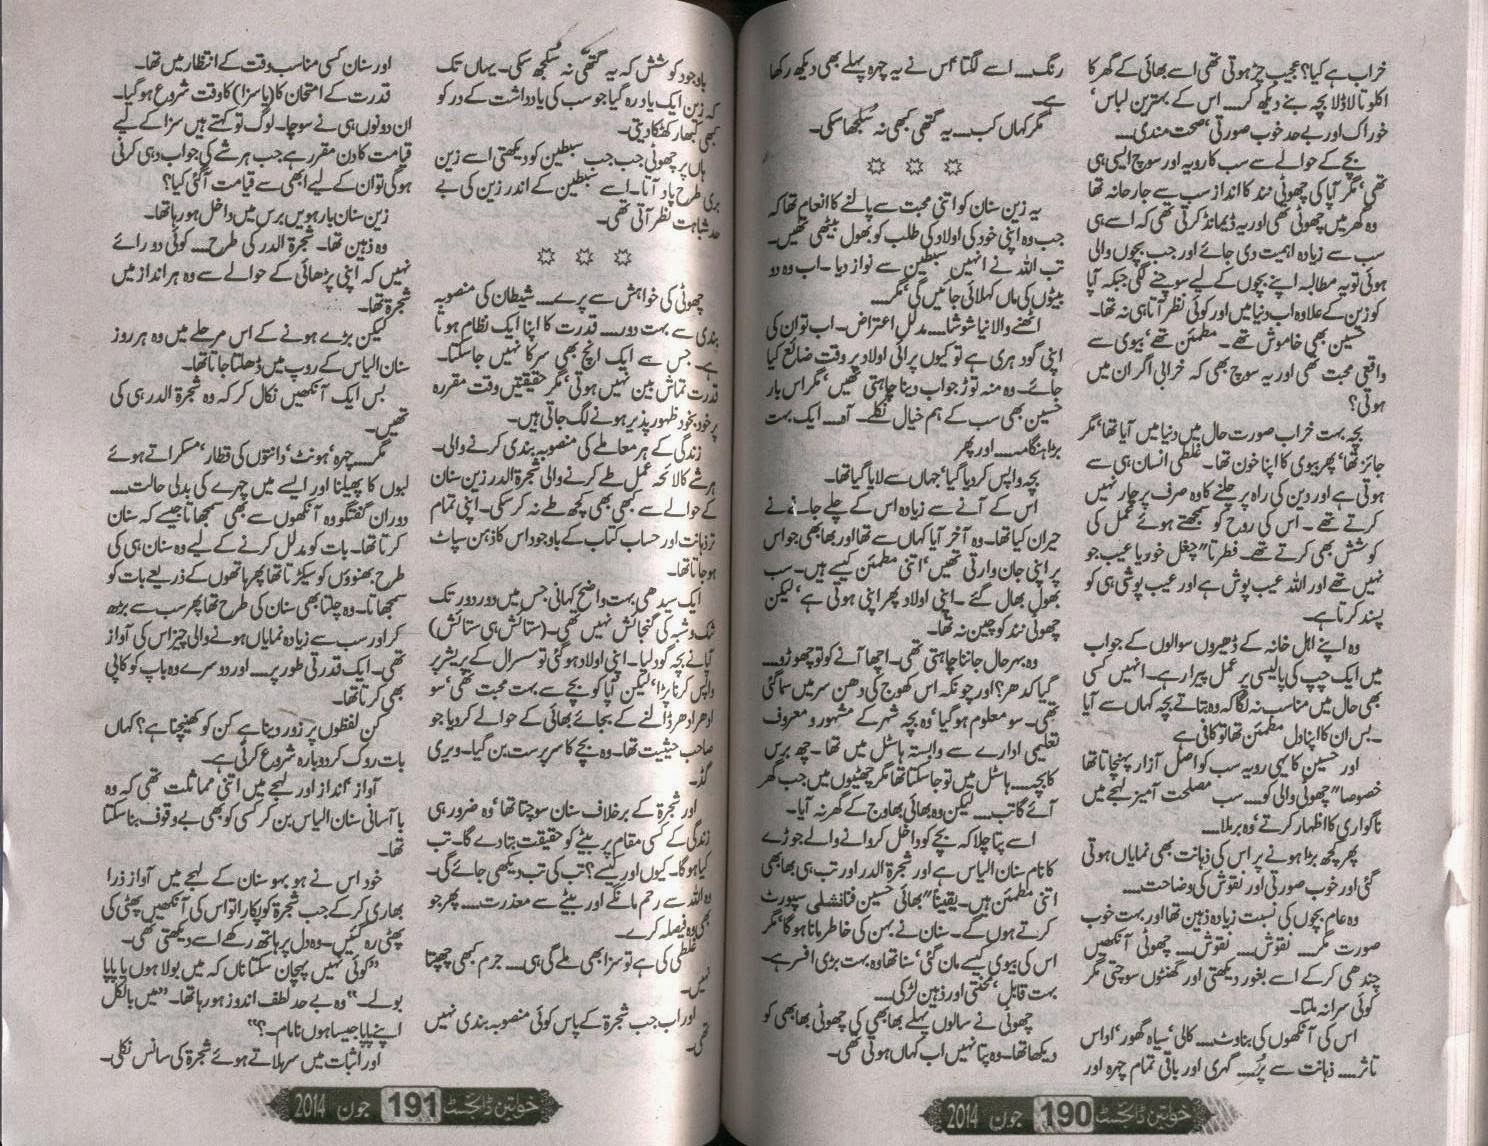 خراب ہے کیا؟ عجیب چڑ ہوتی تھی اسے بھائی کے گھر کا
اکلوتا لاڈلا بچہ بنے دیکھ کر.... اس کے بہترین لباس،
خوراک اور بے حد خوب صورتی، صحت مندی....
بچے کے حوالے سے سب کا رویہ اور سوچ ایسی ہی
تھی، مگر آپا کی چھوٹی نند کا انداز سب سے جارحانہ تھا
وہ گھر میں چھوٹی تھی اور یہ ڈیمانڈ کرتی تھی کہ اسے ہی
سب سے زیادہ اہمیت دی جائے اور جب بچوں والی
ہوئی تو یہ مطالبہ اپنے بچوں کے لیے سوچنے لگی جبکہ آپا
کو زین کے علاوہ اب دنیا میں اور کوئی نظر آتا ہی نہ تھا۔
حسین بھی خاموش تھے۔ مطمئن تھے، بیوی سے
واقعی محبت تھی اور یہ سوچ بھی کہ خرابی اگر ان میں
ہوتی؟
بچہ بہت خراب صورت حال میں دنیا میں آیا تھا، مگر
جائز تھا، پھر بیوی کا اپنا خون تھا۔ غلطی انسان ہی سے
ہوتی ہے اور دین کی راہ پر چلنے کا وہ صرف پرچار نہیں
کرتے تھے۔ اس کی روح کو سمجھتے ہوئے عمل کی
کوشش بھی کرتے تھے۔ فطرتا" چغل خور یا عیب جو
نہیں تھے اور اللہ عیب پوش ہے اور عیب پوشی ہی کو
پسند کرتا ہے۔
وہ اپنے اہل خانہ کے ڈھیروں سوالوں کے جواب
میں ایک چپ کی پالیسی پر عمل پیرا رہے۔ انہیں کسی
بھی حال میں مناسب نہ لگا کہ وہ بتاتے بچہ کہاں سے آیا
۔ بس ان کا اپنا دل مطمئن تھا تو کافی ہے
اور حسین کا یہی رویہ سب کو اصل آزار پہنچاتا تھا
خصوصا" چھوٹی والی کو.... سب مصلحت آمیز لہجے میں
ناگواری کا اظہار کرتے، وہ برملا....
پھر کچھ بڑا ہونے پر اس کی ذہانت بھی نمایاں ہوتی
گئی اور خوب صورتی اور نقوش کی وضاحت....
وہ عام بچوں کی نسبت زیادہ ذہین تھا اور بہت خوب
صورت مگر.... نقوش.... نقوش.... چھوٹی آنکھیں
چندھی کر کے اسے بغور دیکھتی اور گھنٹوں سوچتی مگر
کوئی سرا نہ ملتا۔
اس کی آنکھوں کی بناوٹ.... کالی، سیاہ گھور، اداس
تاثر.... ذہانت سے پُر.... گہری اور باقی تمام چہرہ اور
رنگ.... اسے لگتا اس نے یہ چہرہ پہلے بھی دیکھ رکھا
ہے۔
مگر کہاں کب.... یہ گتھی کبھی نہ سُلجھا سکی۔
یہ زین سنان کو اتنی محبت سے پالنے کا انعام تھا کہ
جب وہ اپنی خود کی اولاد کی طلب کو بھول بیٹھی تھیں۔
تب اللہ نے انہیں سبطین سے نواز دیا۔ اب وہ دو
بیٹوں کی ماں کہلائی جائیں گی، مگر....
اٹھنے والا نیا شوشا.... مدلل اعتراض۔ اب تو ان کی
اپنی گود ہری ہے تو کیوں پرائی اولاد پر وقت ضائع کیا
جائے۔ وہ منہ توڑ جواب دینا چاہتی تھیں، مگر اس بار
حسین بھی سب کے ہم خیال نکلے۔ آہ.... ایک بہت
بڑا ہنگامہ.... اور پھر
بچہ واپس کر دیا گیا، جہاں سے لایا گیا تھا۔
اس کے آنے سے زیادہ اس کے چلے جانے نے
حیران کیا تھا۔ وہ آخر آیا کہاں سے تھا اور بھابھی جو اس
پر اپنی جان وارتی تھیں، اتنی مطمئن کیسے ہیں۔ سب
بھول بھال گئے۔ اپنی اولاد پھر اپنی ہوتی ہے، لیکن
چھوٹی نند کو چین نہ تھا۔
وہ بہر حال جاننا چاہتی تھی۔ اچھا آنے کو تو چھوڑو....
گیا کدھر؟ اور چونکہ اس کھوج کی دھن سر میں سما گئی
تھی۔ سو معلوم ہو گیا، وہ بچہ شہر کے مشہور و معروف
تعلیمی ادارے سے وابستہ ہاسٹل میں تھا۔ چھ برس
کا بچہ.... ہاسٹل میں تو جا سکتا تھا مگر چھٹیوں میں جب گھر
آئے گا تب.... لیکن وہ بھائی بھاوج کے گھر نہ آیا۔
اسے پتا چلا کہ بچے کو داخل کروانے والے جوڑے
کا نام سنان الیاس ہے اور شجرۃ الدر اور تب ہی بھابھی
اتنی مطمئن ہیں۔ یقینا" بھائی حسین فنانشلی سپورٹ
کرتے ہوں گے۔ سنان نے بہن کی خاطر مانا ہو گا، مگر
اس کی بیوی کیسے مان گئی، سنا تھا وہ بہت بڑی افسر ہے۔
بہت قابل، محنتی اور ذہین لڑکی....
چھوٹی نے سالوں پہلے بھابھی کی چھوٹی بھابھی کو
دیکھا تھا۔ وہ پتا نہیں اب کہاں ہوتی تھی۔
خواتین ڈائجسٹ 190 جون 2014
باوجود کوشش کہ یہ گتھی نہ سُلجھ سکی۔ یہاں تک
کہ زین ایک یاد رہ گیا جو سب کی یادداشت کے در کو
کبھی کبھار کھٹکا دیتی۔
ہاں پر چھوٹی جب جب سبطین کو دیکھتی اسے زین
بری طرح یاد آتا۔ اسے سبطین کے اندر زین کی بے
حد شباہت نظر آتی تھی۔
چھوٹی کی خواہش سے پرے.... شیطان کی منصوبہ
بندی سے بہت دور.... قدرت کا اپنا ایک نظام ہوتا
ہے۔ جس سے ایک انچ بھی سرکا نہیں جا سکتا۔
قدرت تماش بین نہیں ہوتی، مگر حقیقتیں وقت مقررہ
پر خود بخود ظہور پذیر ہونے لگ جاتی ہیں۔
زندگی کے ہر معاملے کی منصوبہ بندی کرنے والی۔
ہر شے کا لائحہ عمل طے کرنے والی شجرۃ الدر زین سنان
کے حوالے سے کبھی بھی کچھ طے نہ کر سکی۔ اپنی تمام
تر ذہانت اور حساب کتاب کے باوجود اس کا ذہن سپاٹ
ہو جاتا تھا۔
ایک سیدھی بہت واضح کہانی جس میں دور دور تک
شک و شبہ کی گنجائش نہیں تھی۔ (ستائش ہی ستائش)
آپا نے بچہ گود لیا۔ اپنی اولاد ہو گئی تو سسرال کے پریشر پر
واپس کرنا پڑا، لیکن آپا کو بچے سے بہت محبت تھی، سو
ادھر ادھر ڈالنے کے بجائے بھائی کے حوالے کر دیا جو
صاحب حیثیت تھا۔ وہ بچے کا سرپرست بن گیا۔ ویری
گڈ۔
اور شجرۃ کے برخلاف سنان سوچتا تھا، وہ ضرور ہی
زندگی کے کسی مقام پر بیٹے کو حقیقت بتا دے گا۔ تب
کیا ہو گا۔ کیوں اور کیسے؟ تب کی تب دیکھی جائے گی۔
وہ اللہ سے رحم مانگے اور بیٹے سے معذرت.... پھر جو
بھی وہ فیصلہ کرے۔
غلطی کی ہے تو سزا بھی ملے گی ہی.... جرم کبھی چھپتا
نہیں۔
اور اب جب شجرۃ کے پاس کوئی منصوبہ بندی نہیں
تھی۔
اور سنان کسی مناسب وقت کے انتظار میں تھا۔
قدرت کے امتحان کا (یا سزا) کا وقت شروع ہو گیا۔
ان دونوں ہی نے سوچا۔ لوگ تو کہتے ہیں سزا کے لیے
قیامت کا دن مقرر ہے جب ہر شے کی جواب دہی کرنی
ہو گی تو ان کے لیے ابھی سے قیامت آ گئی کیا؟
زین سنان بارہویں برس میں داخل ہو رہا تھا۔
وہ ذہین تھا۔ شجرۃ الدر کی طرح.... کوئی دو رائے
نہیں کہ اپنی پڑھائی کے حوالے سے وہ ہر انداز میں
شجرۃ تھا۔
لیکن بڑے ہونے کے اس مرحلے میں وہ ہر روز
سنان الیاس کے روپ میں ڈھلتا جاتا تھا۔
بس ایک آنکھیں نکال کر کہ وہ شجرۃ الدر ہی کی
تھیں۔
مگر.... چہرہ، ہونٹ، دانتوں کی قطار، مسکراتے ہوئے
لبوں کا پھیلنا اور ایسے میں چہرے کی بدلی حالت....
دوران گفتگو وہ آنکھوں سے بھی سمجھاتا جیسے کہ سنان
کرتا تھا۔ بات کو مدلل کرنے کے لیے وہ سنان ہی کی
طرح بھنوؤں کو سیکڑتا تھا پھر ہاتھوں کے ذریعے بات کو
سمجھاتا۔ وہ چلتا بھی سنان کی طرح تھا پھر سب سے بڑھ
کر اور سب سے زیادہ نمایاں ہونے والی چیز اس کی آواز
تھی۔ ایک قدرتی طور پر.... اور دوسرے وہ باپ کو کاپی
بھی کرتا تھا۔
کن لفظوں پر زور دینا ہے کن کو کھینچنا ہے؟ کہاں
بات روک کر دوبارہ شروع کرنی ہے۔
آواز، انداز اور لہجے میں اتنی مماثلت تھی کہ وہ
با آسانی سنان الیاس بن کر کسی کو بھی بے وقوف بنا سکتا
تھا۔
خود اس نے ہو بہو سنان کے لہجے میں آواز ذرا
بھاری کر کے جب شجرۃ کو پکارا تو اس کی آنکھیں پھٹی کی
پھٹی رہ گئیں۔ وہ دل پر ہاتھ رکھے اسے دیکھتی تھی۔
"کوئی نہیں پہچان سکتا ناں کہ میں بولا ہوں یا پاپا
بولے۔" وہ بے حد لطف اندوز ہو رہا تھا۔ "میں بالکل
اپنے پاپا جیسا ہوں نا مام۔؟"
اور اثبات میں سر ہلاتے ہوئے شجرۃ کی سانس نکلی۔
خواتین ڈائجسٹ 191 جون 2014